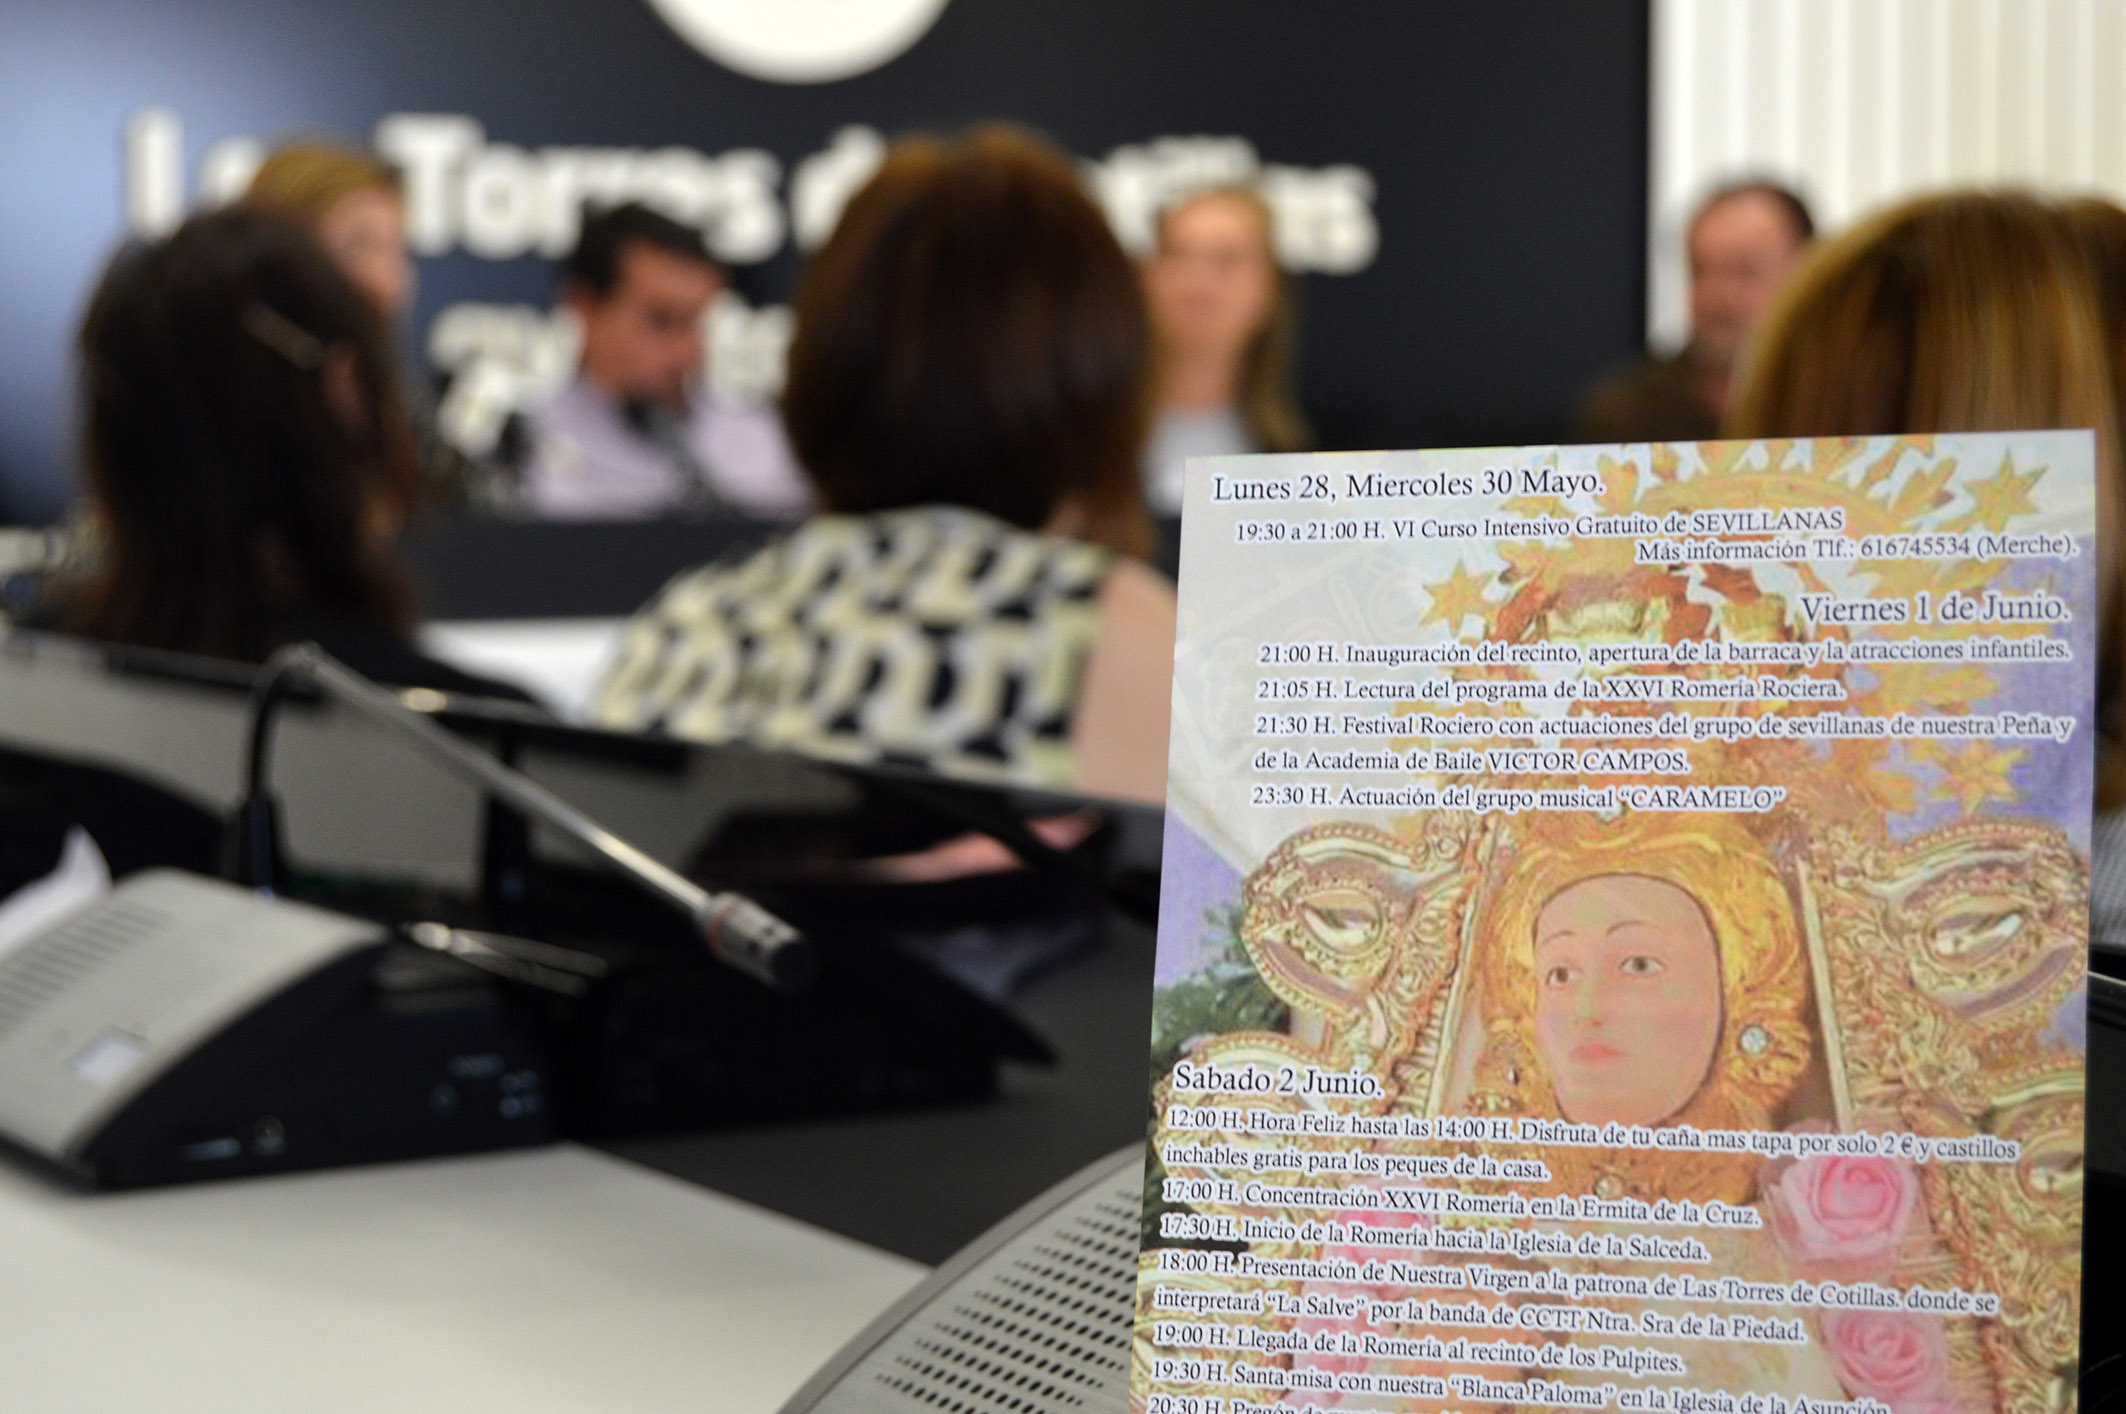 Las Torres de Cotillas
Lunes 28, Miercoles 30 Mayo.
19:30 a 21:00 H. VI Curso Intensivo Gratuito de SEVILLANAS
Más información Tlf.: 616745534 (Merche).
Viernes 1 de Junio.
21:00 H. Inauguración del recinto, apertura de la barraca y la atracciones infantiles.
21:05 H. Lectura del programa de la XXVI Romería Rociera.
21:30 H. Festival Rociero con actuaciones del grupo de sevillanas de nuestra Peña y
de la Academia de Baile VICTOR CAMPOS.
23:30 H. Actuación del grupo musical "CARAMELO"
Sabado 2 Junio.
12:00 H. Hora Feliz hasta las 14:00 H. Disfruta de tu caña mas tapa por solo 2 € y castillos
inchables gratis para los peques de la casa.
17:00 H. Concentración XXVI Romería en la Ermita de la Cruz.
17:30 H. Inicio de la Romería hacia la Iglesia de la Salceda.
18:00 H. Presentación de Nuestra Virgen a la patrona de Las Torres de Cotillas. donde se
interpretará "La Salve" por la banda de CCTT Ntra. Sra de la Piedad.
19:00 H. Llegada de la Romería al recinto de los Pulpites.
19:30 H. Santa misa con nuestra "Blanca Paloma" en la Iglesia de la Asunción
20:30 H. Pregón de